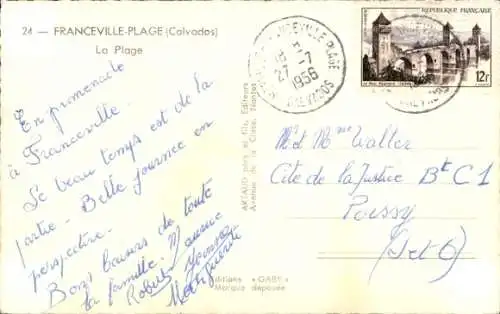 24 — FRANCEVILLE-PLAGE (Calvados)
La Plage
En promenade
à Franceville.
Le beau temps est de la
partie - Belle journée en
perspective.
Bons baisers de toute
la famille.
Robert Yvonne
Marguerite
ARTAUD père et fils, Éditeurs
Avenue de la Close, Nantes
Éditions "GABY"
Marque déposée
FRANCEVILLE PLAGE
27 -7
1956
CALVADOS
REPUBLIQUE FRANÇAISE
12f
M et Mme Walter
Cité de la Justice Bt C1
Poissy
(S et O)